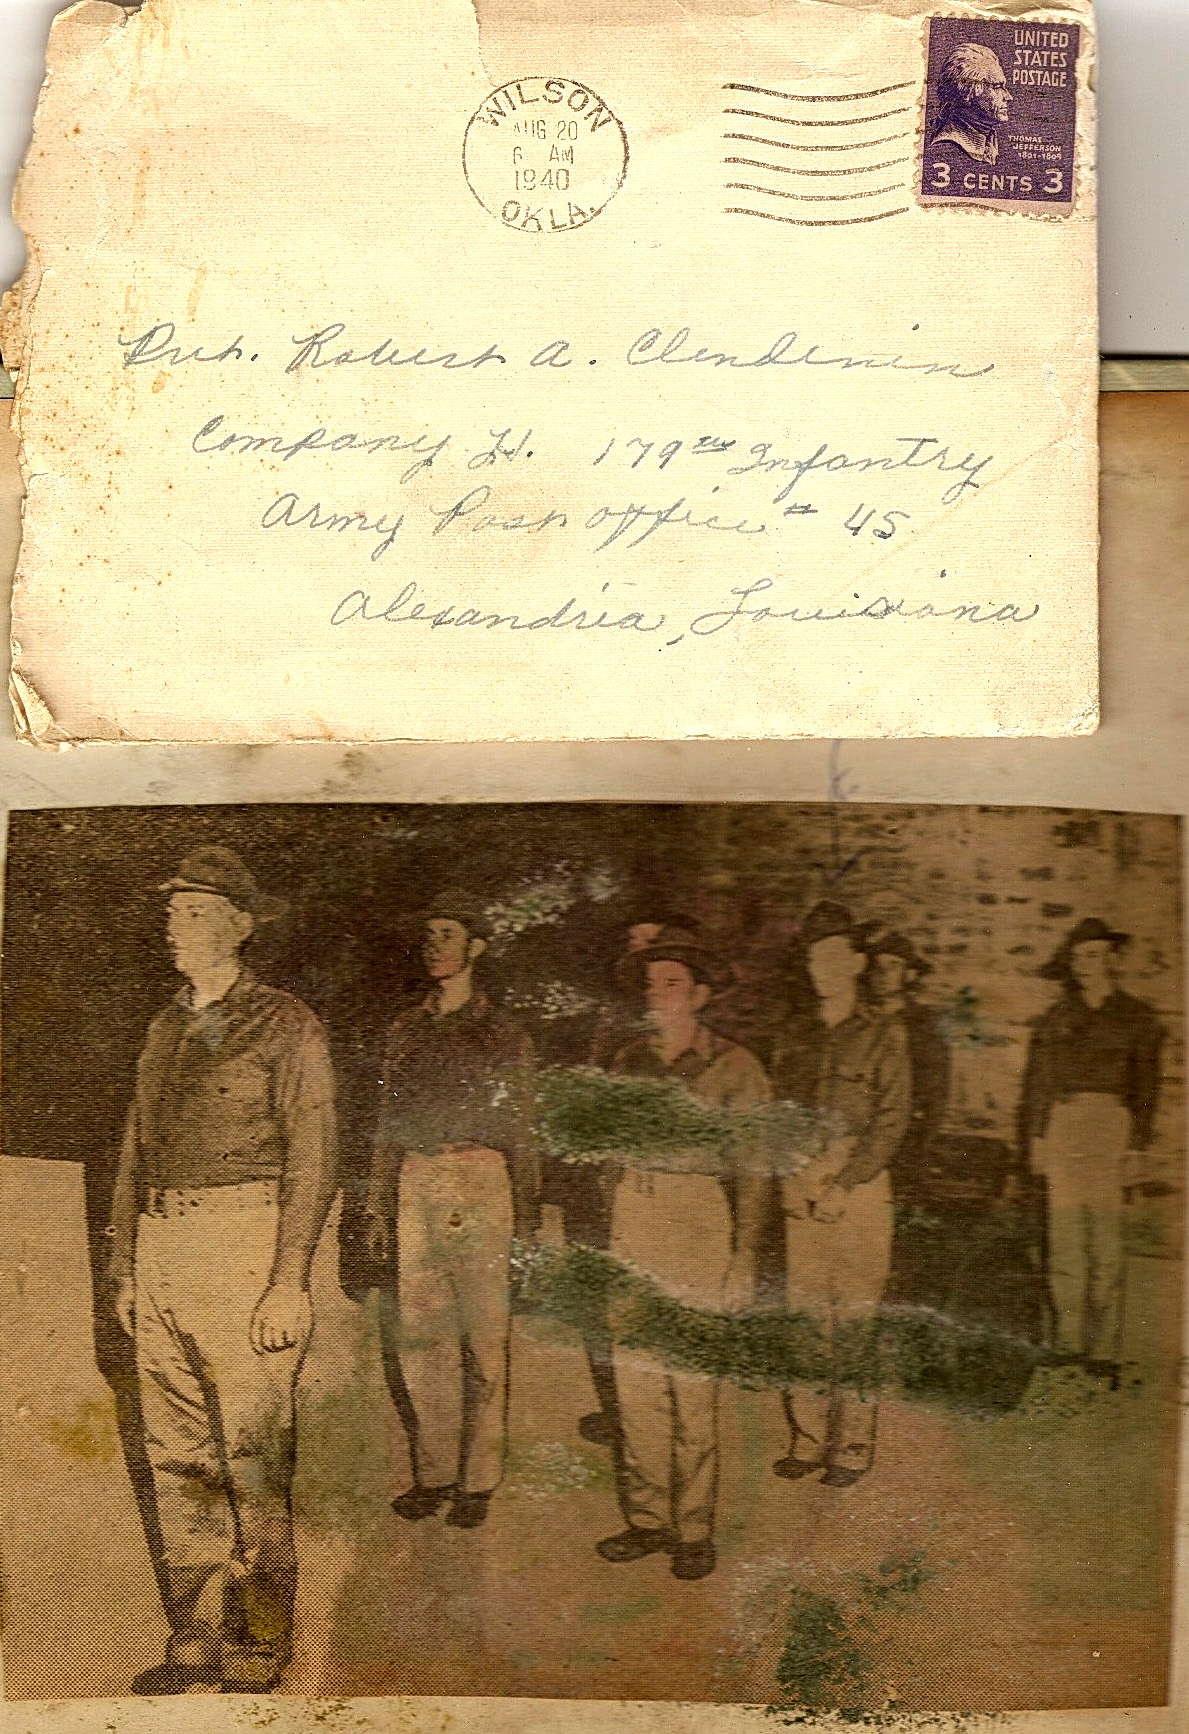 WILSON
AUG 20
6 AM
1940
OKLA.
UNITED
STATES
POSTAGE
THOMAS
JEFFERSON
1801-1809
3 CENTS 3
Pvt. Robert A. Clendenin
Company H. 179th Infantry
Army Post office # 45
Alexandria, Louisiana